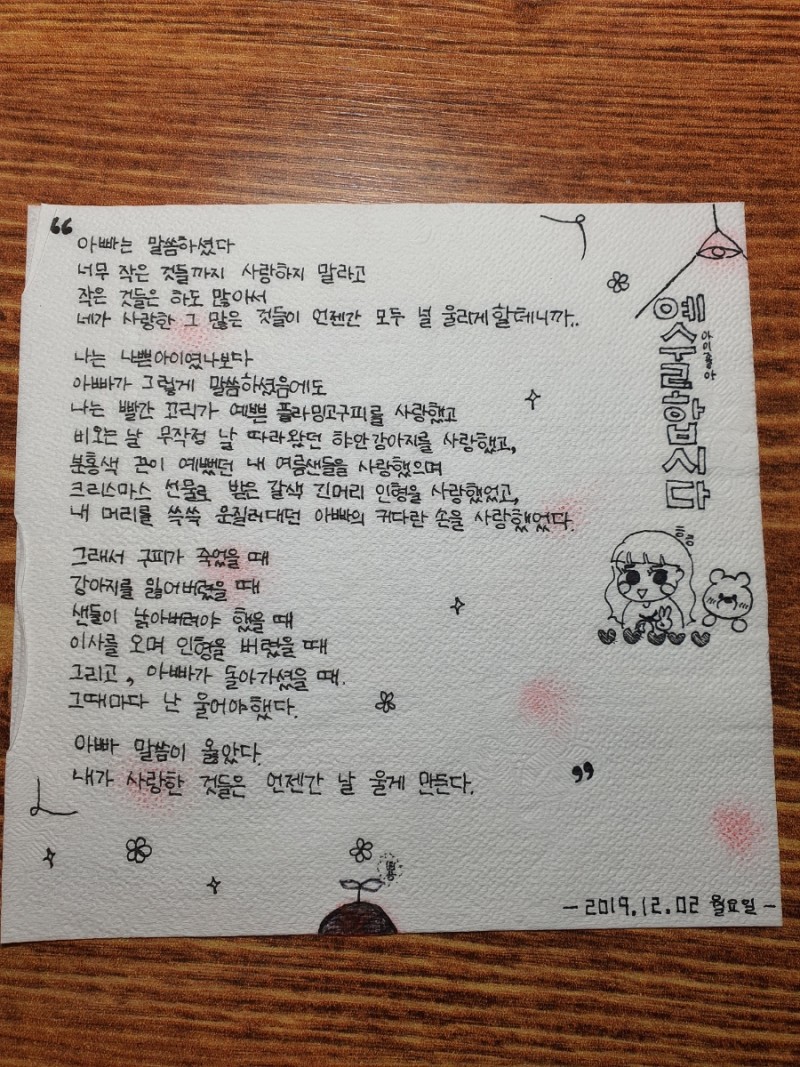 “
아빠는 말씀하셨다
너무 작은 것들까지 사랑하지 말라고
작은 것들은 하도 많아서
네가 사랑한 그 많은 것들이 언젠간 모두 널 울리게할테니까..
나는 나쁜아이였나보다
아빠가 그렇게 말씀하셨음에도
나는 빨간 꼬리가 예쁜 플라밍고구피를 사랑했고
비오는날 무작정 날 따라왔던 하얀강아지를 사랑했고,
분홍색 끈이 예뻤던 내 여름샌들을 사랑했으며
크리스마스 선물로 받은 갈색 긴머리 인형을 사랑했었고,
내 머리를 쓱쓱 문질러대던 아빠의 커다란 손을 사랑했었다.
그래서 구피가 죽었을 때
강아지를 잃어버렸을 때
샌들이 낡아버려야 했을 때
이사를 오며 인형을 버렸을 때
그리고, 아빠가 돌아가셨을 때.
그때마다 난 울어야했다.
아빠 말씀이 옳았다.
내가 사랑한 것들은 언젠간 날 울게 만든다.
”
예술합시다
아이좋아
- 2019.12.02 월요일 -